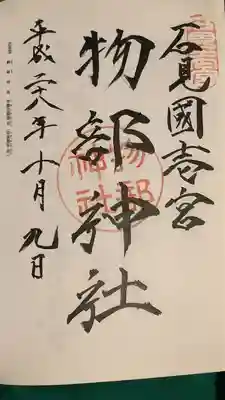 石見國壱宮
物部神社
平成二十八年十月九日
物部
神社